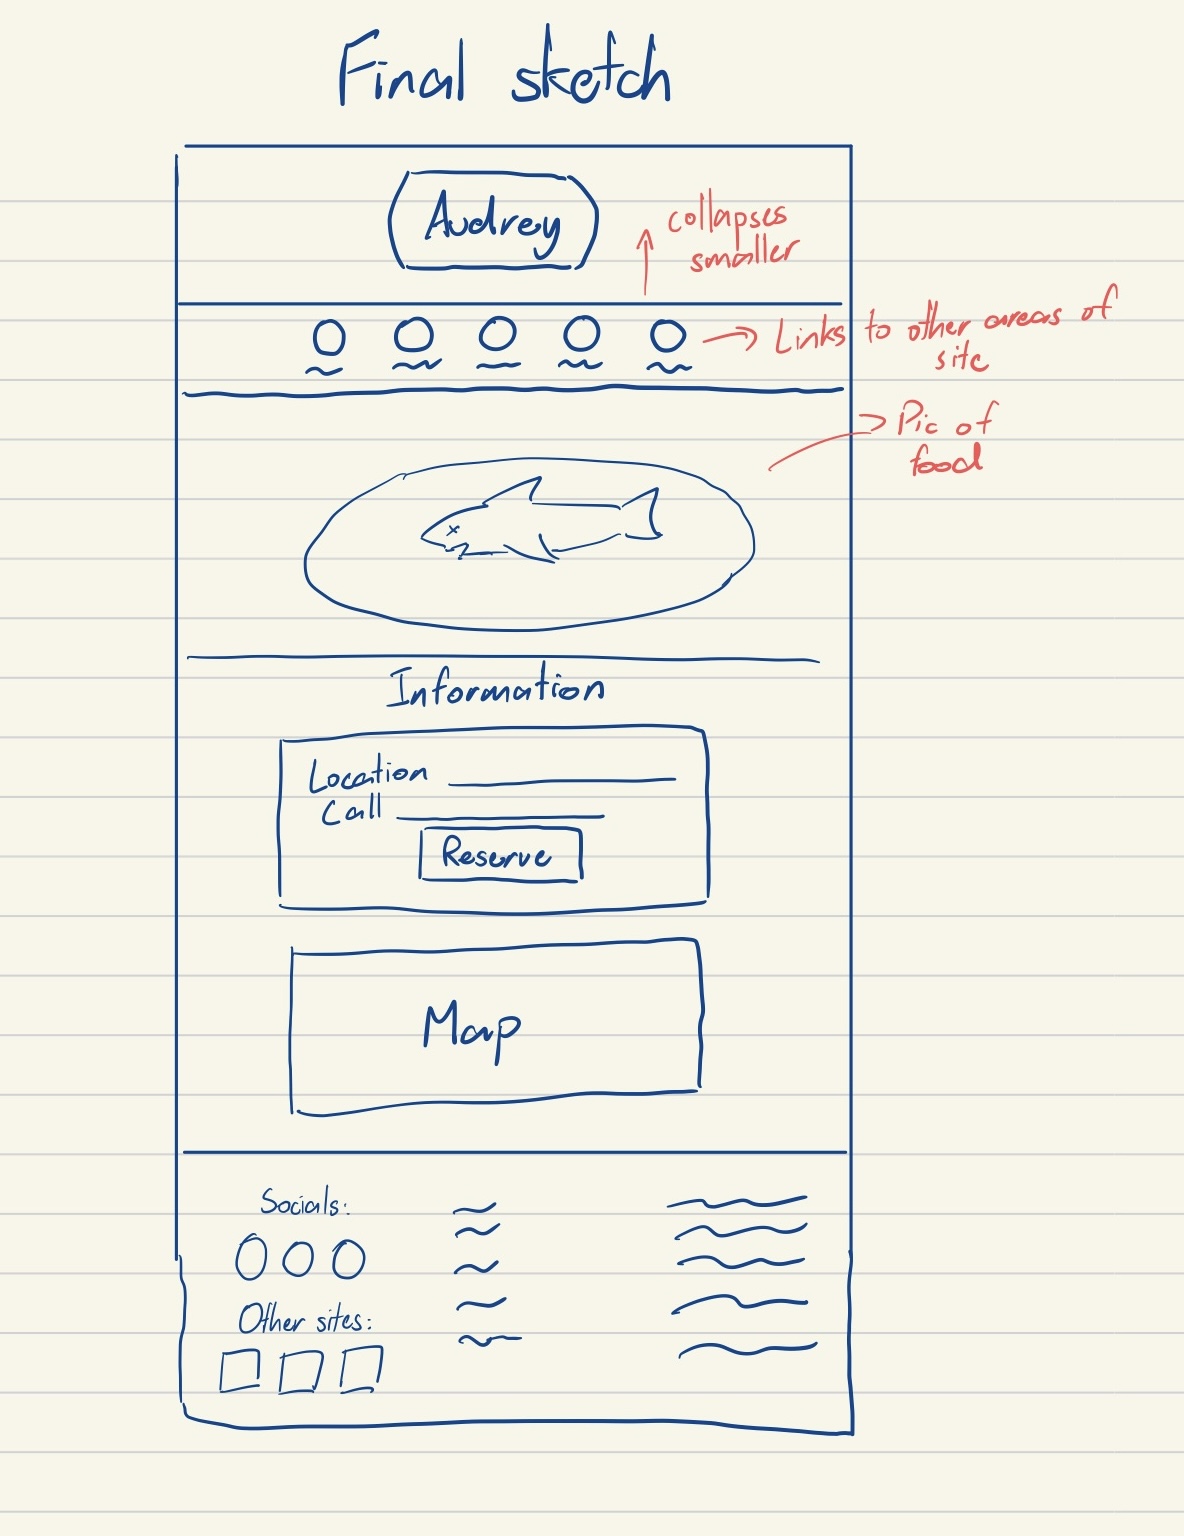 Final sketch
Audrey
collapses
smaller
Links to other areas of
site
Pic of
food
Information
Location
Call
Reserve
Map
Socials:
Other sites: